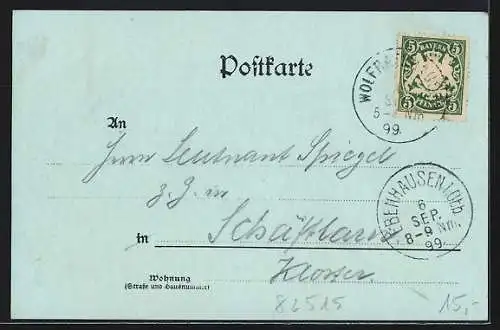 Postkarte
5 BAYERN 5
5 PFENNIG 5
WOLFRA
5-6 Nm.
99.
An
Herrn Leutnant Spiegel
z. Z. in
in Schäftlarn
Kloster.
EBENHAUSEN i.Ob.
6
SEP.
8-9 Nm.
99
Wohnung
(Straße und Hausnummer)
82515
15,-